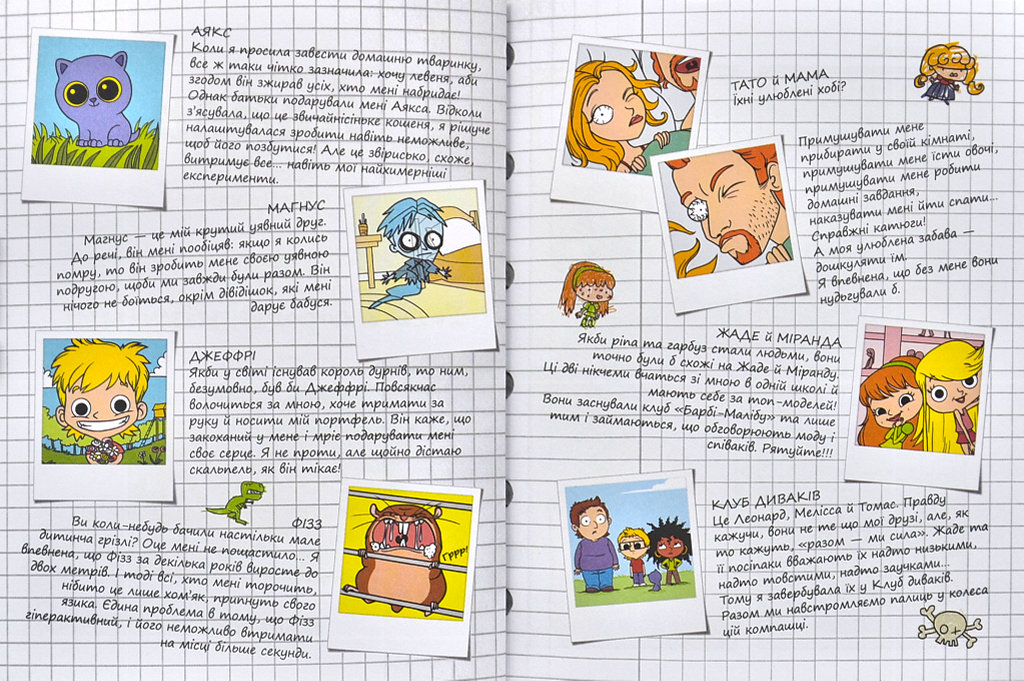 АЯКС
Коли я просила завести домашню тваринку,
все ж таки чітко зазначила: хочу левеня, аби
згодом він зжирав усіх, хто мені набридає!
Однак батьки подарували мені Аякса. Відколи
з'ясувала, що це звичайнісіньке кошеня, я рішуче
налаштувалася зробити навіть неможливе,
щоб його позбутися! Але це звірисько, схоже,
витримує все... навіть мої найхимерніші
експерименти.
МАГНУС
Магнус — це мій крутий уявний друг.
До речі, він мені пообіцяв: якщо я колись
помру, то він зробить мене своєю уявною
подругою, щоби ми завжди були разом. Він
нічого не боїться, окрім дівідішок, які мені
дарує бабуся.
ДЖЕФФРІ
Якби у світі існував король дурнів, то ним,
безумовно, був би Джеффрі. Повсякчас
волочиться за мною, хоче тримати за
руку й носити мій портфель. Він каже, що
закоханий у мене і мріє подарувати мені
своє серце. Я не проти, але щойно дістаю
скальпель, як він тікає!
ФІЗЗ
Ви коли-небудь бачили настільки мале
дитинча грізлі? Оце мені не пощастило... Я
впевнена, що Фізз за декілька років виросте до
двох метрів. І тоді всі, хто мені торочить,
нібито це лише хом'як, припнуть свого
язика. Єдина проблема в тому, що Фізз
гіперактивний, і його неможливо втримати
на місці більше секунди.
ГРРР!
ТАТО й МАМА
Їхні улюблені хобі?
Примушувати мене
прибирати у своїй кімнаті,
примушувати мене їсти овочі,
примушувати мене робити
домашні завдання,
наказувати мені йти спати...
Справжні катюги!
А моя улюблена забава —
дошкуляти їм.
Я впевнена, що без мене вони
нудьгували б.
ЖАДЕ й МІРАНДА
Якби ріпа та гарбуз стали людьми, вони
точно були б схожі на Жаде й Міранду.
Ці дві нікчеми вчаться зі мною в одній школі й
мають себе за топ-моделей!
Вони заснували клуб «Барбі-Малібу» та лише
тим і займаються, що обговорюють моду і
співаків. Рятуйте!!!
КЛУБ ДИВАКІВ
Це Леонард, Мелісса й Томас. Правду
кажучи, вони не те що мої друзі, але, як
то кажуть, «разом — ми сила». Жаде та
її посіпаки вважають їх надто низькими,
надто товстими, надто заучками...
Тому я завербувала їх у Клуб диваків.
Разом ми навстромляємо палиць у колеса
цій компашці.